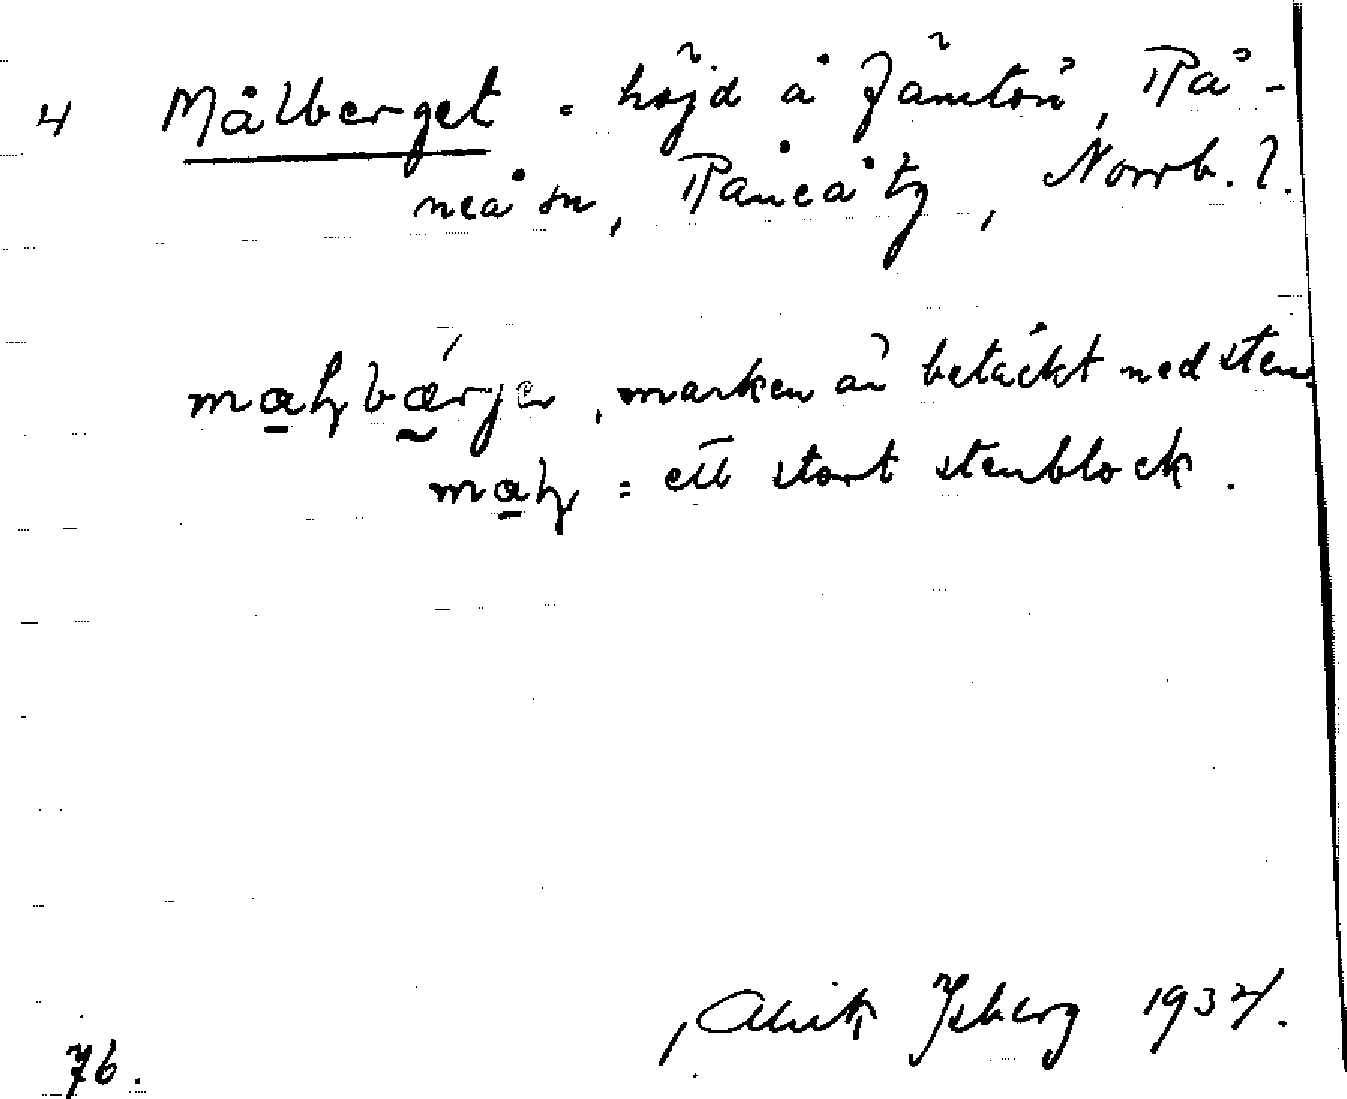 4 Målberget. höjd å Jämtön, Rå-
neå sn, Råneå tg, Norrb. l.
marken är betäckt med sten
= ett stort stenblock.
Isberg 1934.
76.